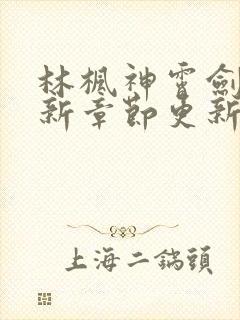 林楓神雷劍
新章節更新
上海二鍋頭